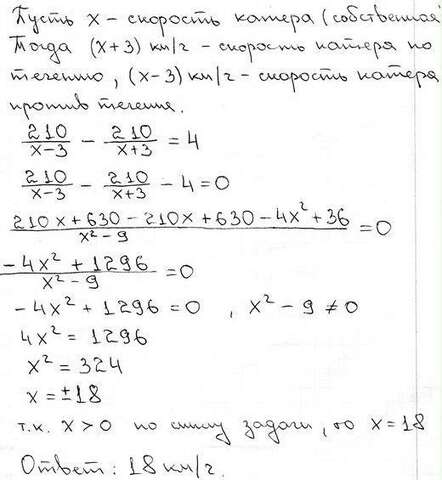 Пусть x – скорость катера (собственная)
Тогда (x+3) км/г – скорость катера по
течению, (x-3) км/г – скорость катера
против течения.
210/(x-3) - 210/(x+3) = 4
210/(x-3) - 210/(x+3) - 4 = 0
(210x + 630 - 210x + 630 - 4x² + 36)/(x² - 9) = 0
(-4x² + 1296)/(x² - 9) = 0
-4x² + 1296 = 0 , x² - 9 ≠ 0
4x² = 1296
x² = 324
x = ±18
т.к. x > 0 по смыслу задачи, то x = 18
Ответ: 18 км/г.